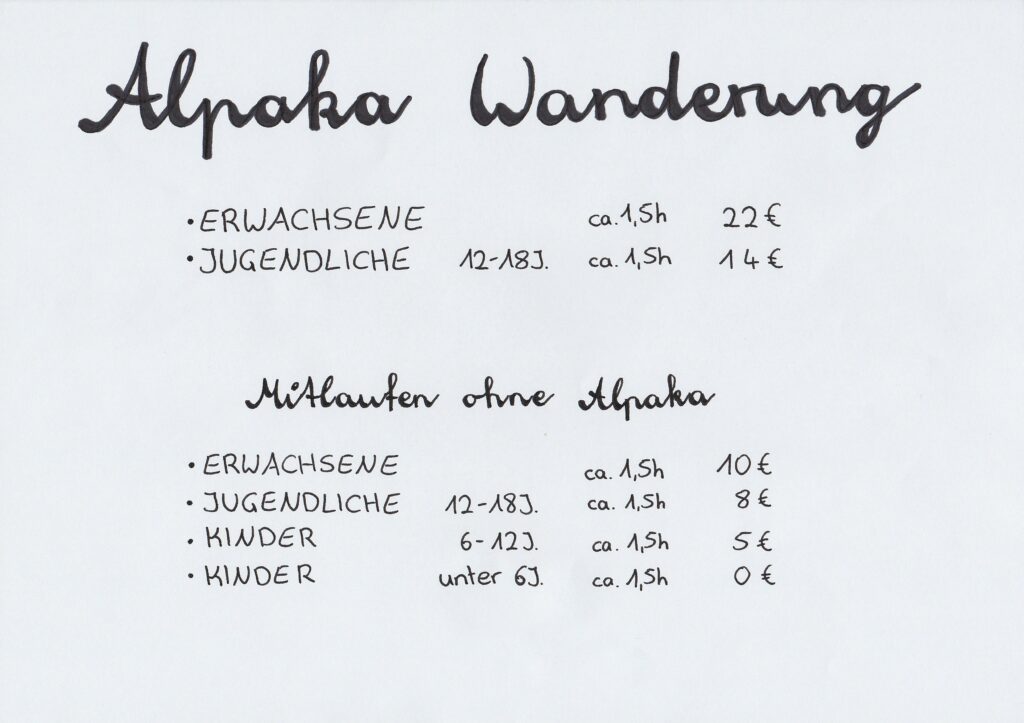 Alpaka Wanderung
• ERWACHSENE ca. 1,5h 22 €
• JUGENDLICHE 12-18J. ca. 1,5h 14 €
Mitlaufen ohne Alpaka
• ERWACHSENE ca. 1,5h 10 €
• JUGENDLICHE 12-18J. ca. 1,5h 8 €
• KINDER 6-12J. ca. 1,5h 5 €
• KINDER unter 6J. ca. 1,5h 0 €